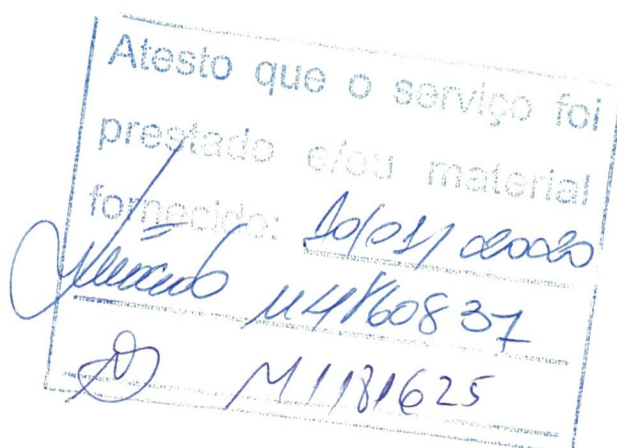 Atesto que o serviço foi
prestado e/ou material
fornecido: 10/01/2020
M4860837
M1181625